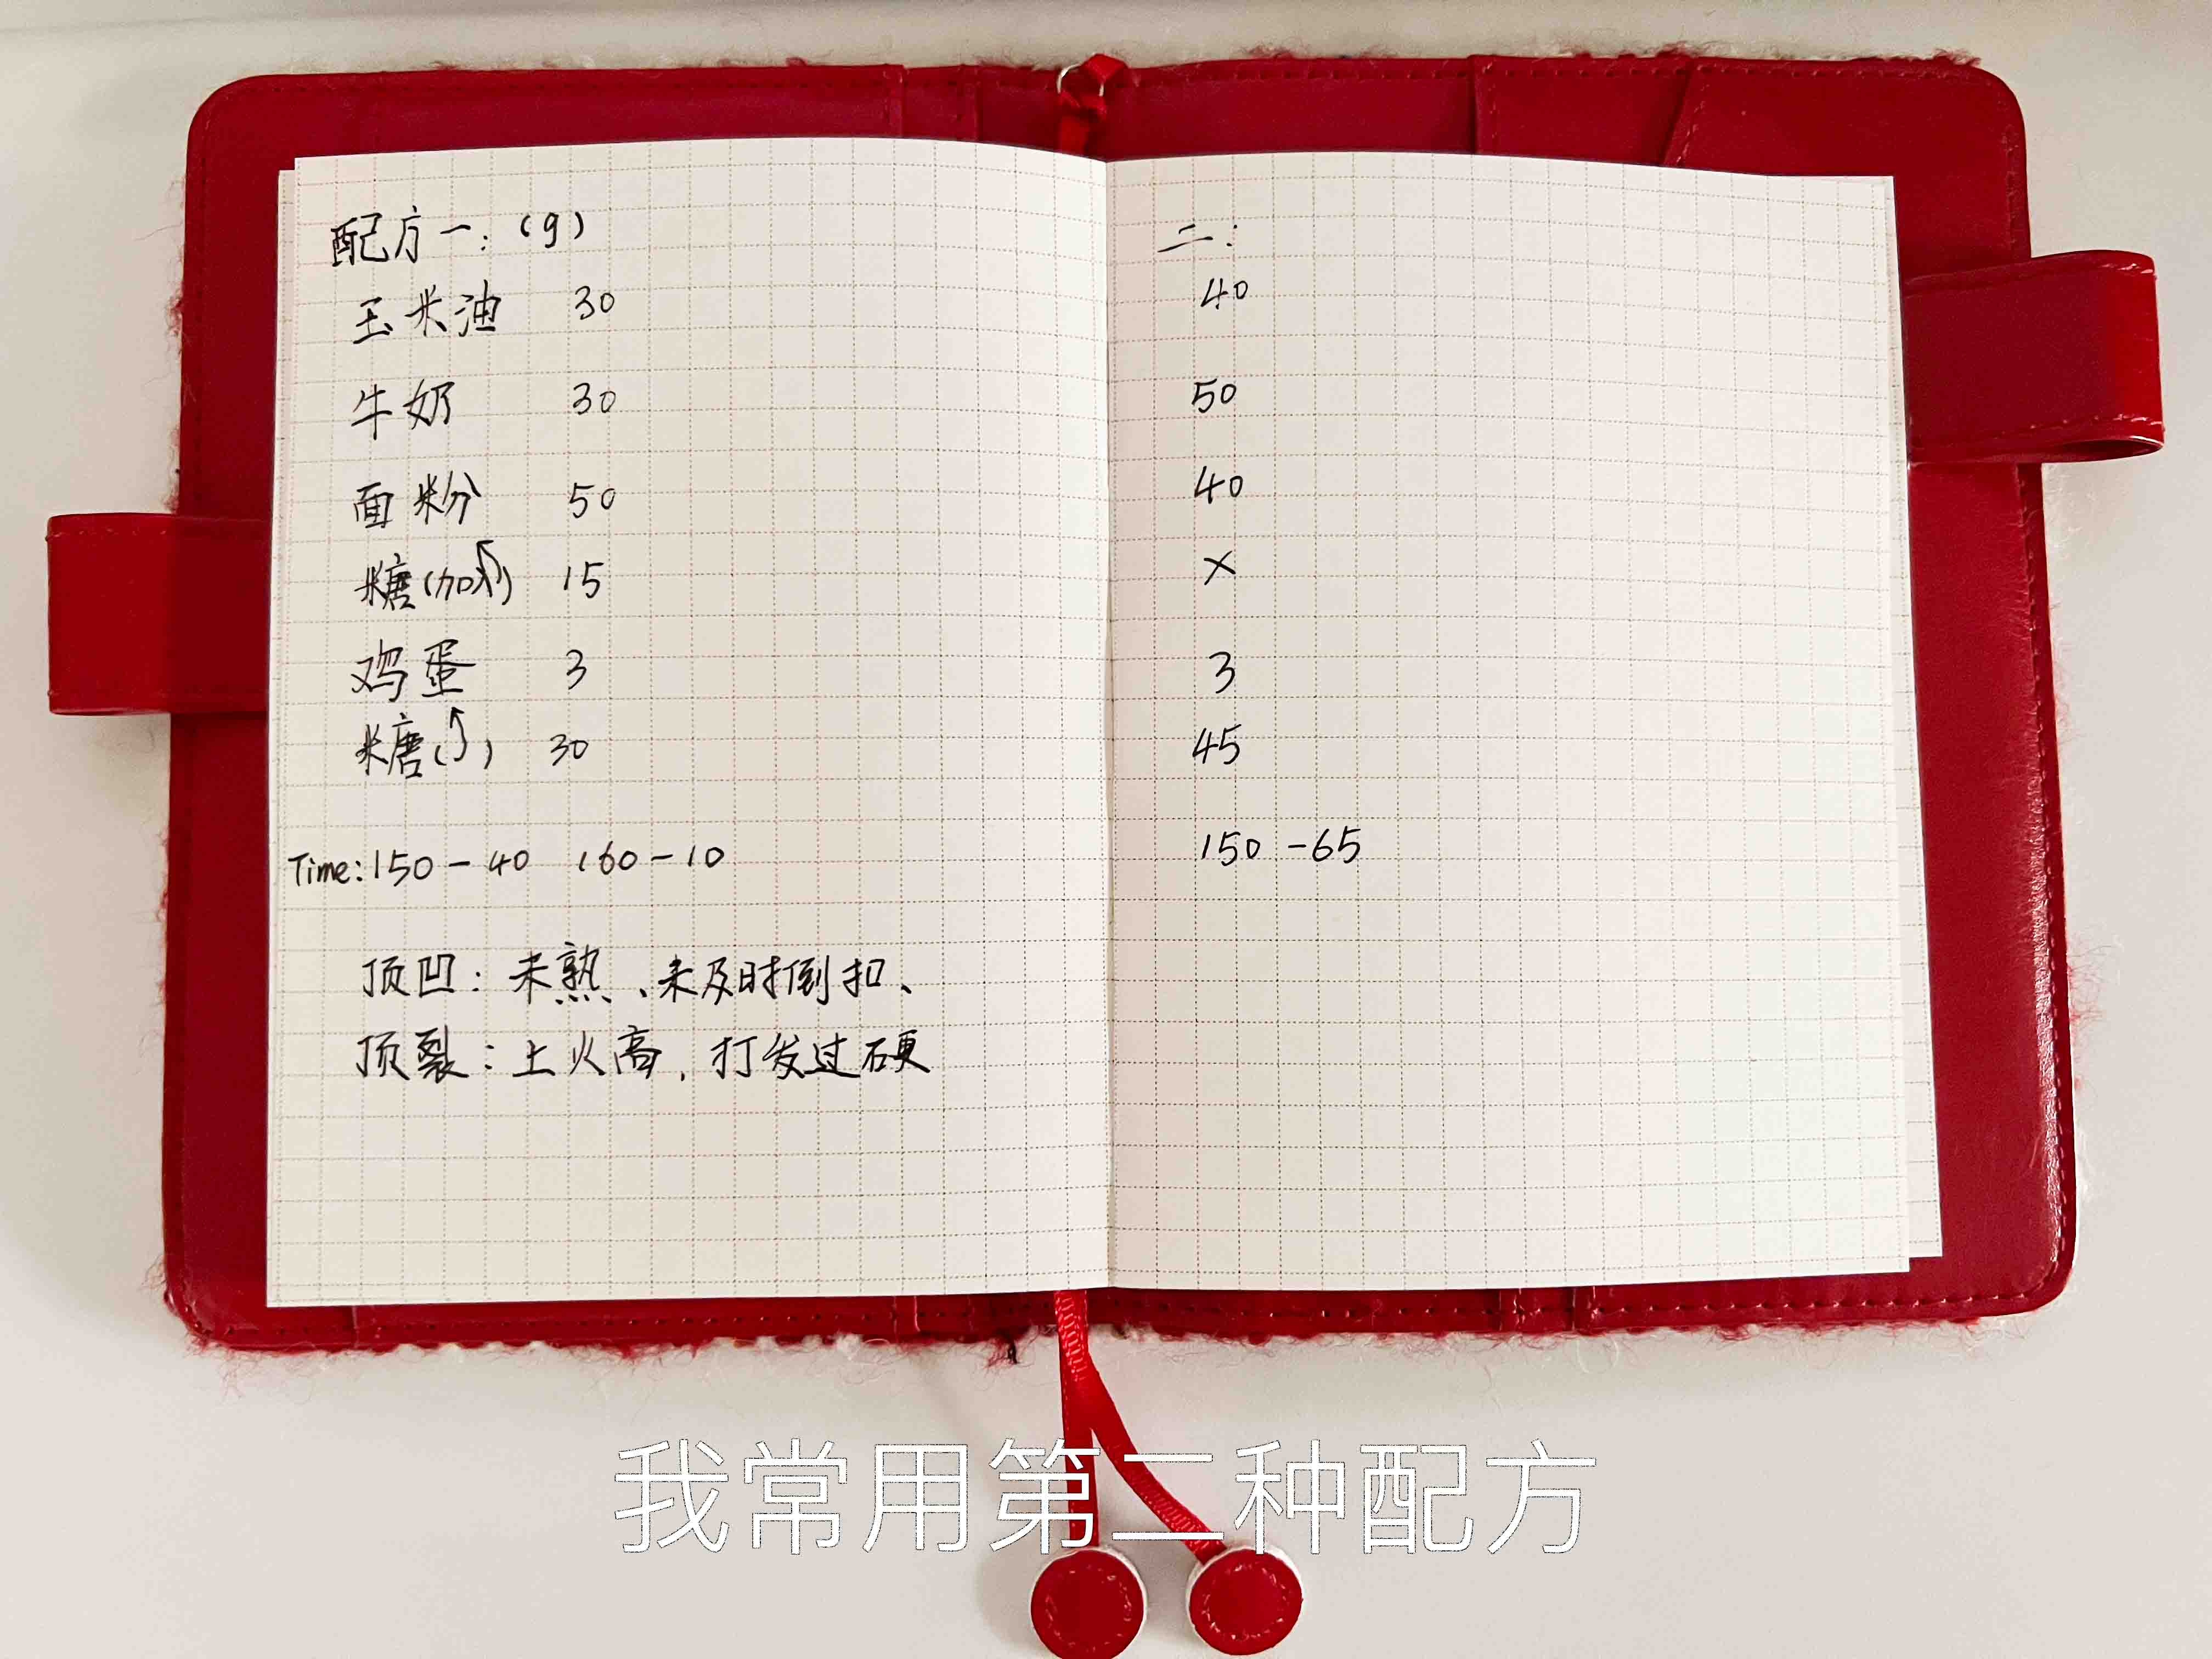 配方一：(g)
玉米油 30
牛奶 30
面粉 50
糖(加↑) 15
鸡蛋 3
糖(↑) 30
Time: 150 - 40 160 - 10
顶凹：未熟、未及时倒扣、
顶裂：上火高，打发过硬
二：
40
50
40
×
3
45
150 - 65
我常用第二种配方